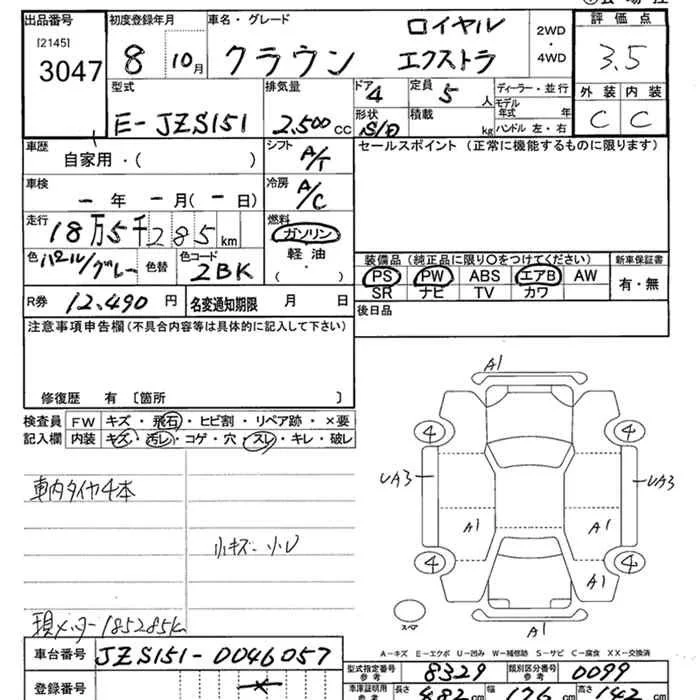 出品番号 初度登録年月 車名・グレード ロイヤル 2WD 評価点
[2145] 8 10月 クラウン エクストラ ・ 3.5
3047 4WD
型式 排気量 ドア 4 定員 5 人 ディーラー・並行 外装 内装
E-JZS151 2,500 cc 形状 S/D 積載 kg モデル年式 年 C C
ハンドル 左・右
車歴 自家用・( ) シフト A/T セールスポイント (正常に機能するものに限ります)
車検 - 年 - 月 (- 日) 冷房 A/C
走行 18万5千285 km 燃料 ガソリン
軽油
・
( )
色 パール/グレー 色替 色コード 2BK
装備品 (純正品に限り○をつけてください) 新車保証書
PS PW ABS エアB AW 有・無
SR ナビ TV カワ
R券 12,490 円 名変通知期限 月 日
後日品
注意事項申告欄(不具合内容等は具体的に記入して下さい)
修復歴 有 〔箇所 〕
検査員 FW キズ・飛石・ヒビ割・リペア跡・×要
記入欄 内装 キズ・汚レ・コゲ・穴・スレ・キレ・破レ
車内タイヤ4本
小キズ 小U
現メーター185285km
A1
4 4
UA3 UA3
A1 A1
4 4
A1
スペア
A1
A-キズ E-エクボ U-凹み W-補修跡 S-サビ C-腐食 XX-交換済
車台番号 JZS151-0046057
型式指定番号 参考 8329 類別区分番号 参考 0099
登録番号
車庫証明用 参考 長さ 482 cm 幅 176 cm 高さ 142 cm